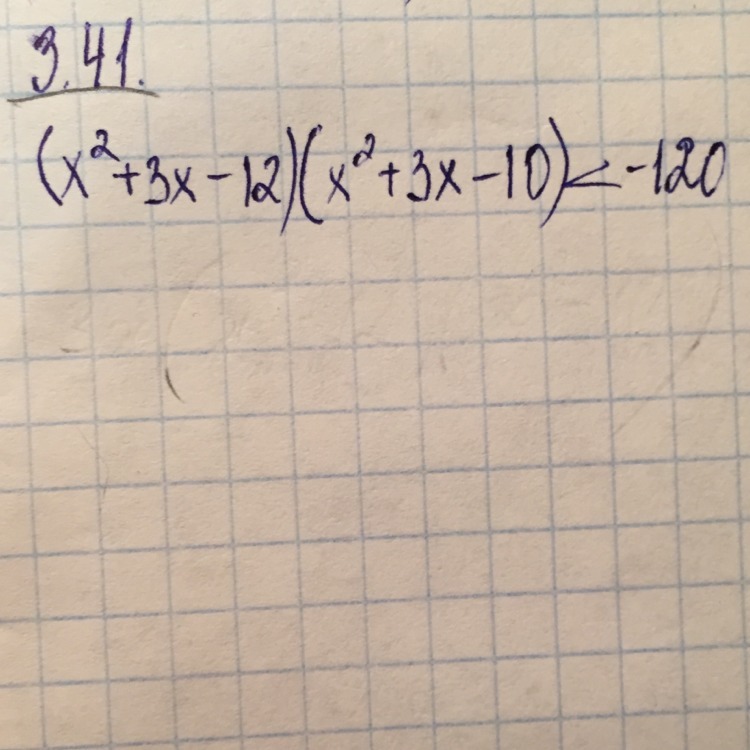 3.41.
(x²+3x-12)(x²+3x-10)<-120